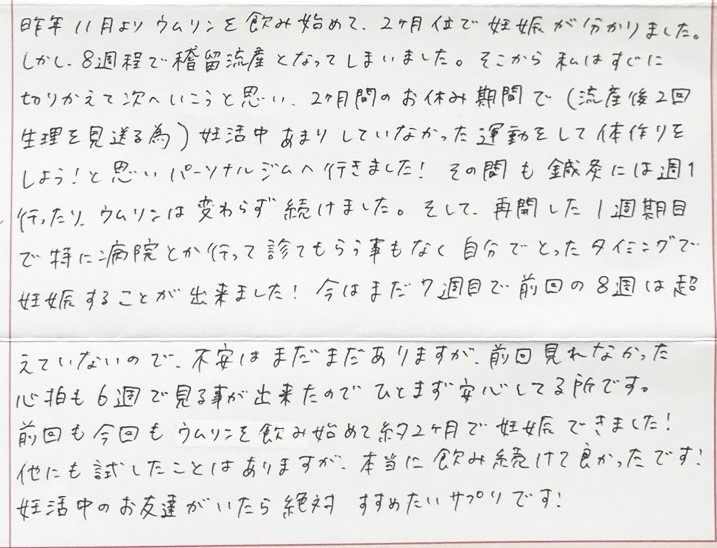 昨年11月よりウムリンを飲み始めて、2ヶ月位で妊娠が分かりました。
しかし、8週程で稽留流産となってしまいました。そこから私はすぐに
切りかえて次へいこうと思い、2ヶ月間のお休み期間で(流産後2回
生理を見送る為)妊活中あまりしていなかった運動をして体作りを
しよう!と思いパーソナルジムへ行きました!その間も鍼灸には週1
行ったり、ウムリンは変わらず続けました。そして、再開した1週期目
で特に病院とか行って診てもらう事もなく自分でとったタイミングで
妊娠することが出来ました!今はまだ7週目で前回の8週は超
えていないので、不安はまだまだありますが、前回見れなかった
心拍も6週で見る事が出来たのでひとまず安心してる所です。
前回も今回もウムリンを飲み始めて約2ヶ月で妊娠できました!
他にも試したことはありますが、本当に飲み続けて良かったです!
妊活中のお友達がいたら絶対すすめたいサプリです!